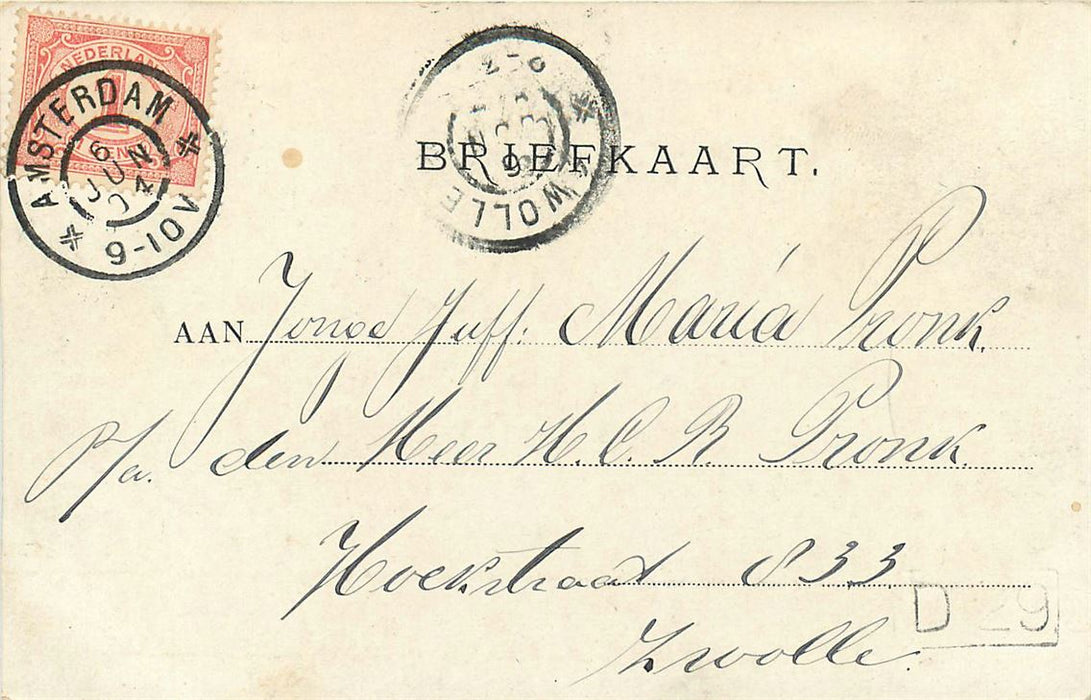 NEDERLAND
1
CENT
AMSTERDAM
6
JUN
04
9-10V
ZWOLLE
BRIEFKAART.
AAN Jonge Juff: Maria Pronk.
P/a. den Heer H. C. R. Pronk.
Hoekstraat 833
Zwolle.
D 29